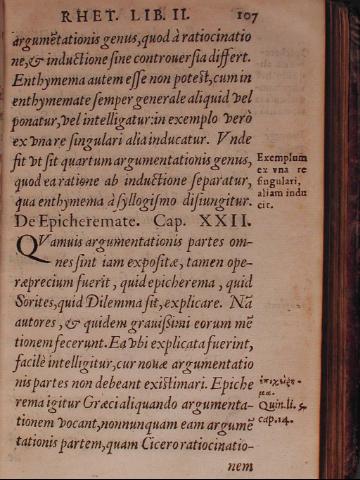 RHET. LIB. II. 107
argumētationis genus, quod à ratiocinatio
ne, & inductione sine controuersia differt.
Enthymema autem esse non potest, cum in
enthymemate semper generale aliquid vel
ponatur, vel intelligatur: in exemplo verò
ex vna re singulari alia inducatur. Vnde
fit vt sit quartum argumentationis genus,
quod ea ratione ab inductione separatur,
qua enthymema à syllogismo disiungitur.
Exemplum
ex vna re
singulari,
aliam indu
cit.
De Epicheremate. Cap. XXII.
QVamuis argumentationis partes om-
nes sint iam expositæ, tamen ope-
ræprecium fuerit, quid epicherema, quid
Sorites, quid Dilemma sit, explicare. Nā
autores, & quidem grauissimi eorum mē
tionem fecerunt. Ea vbi explicata fuerint,
facilè intelligitur, cur nouæ argumentatio
nis partes non debeant existimari. Epiche
rema igitur Græci aliquando argumenta-
tionem vocant, nonnunquam eam argumē
tationis partem, quam Cicero ratiocinatio-
ἐπιχείρη-
μα.
Quin. li. 5.
cap. 14.
nem